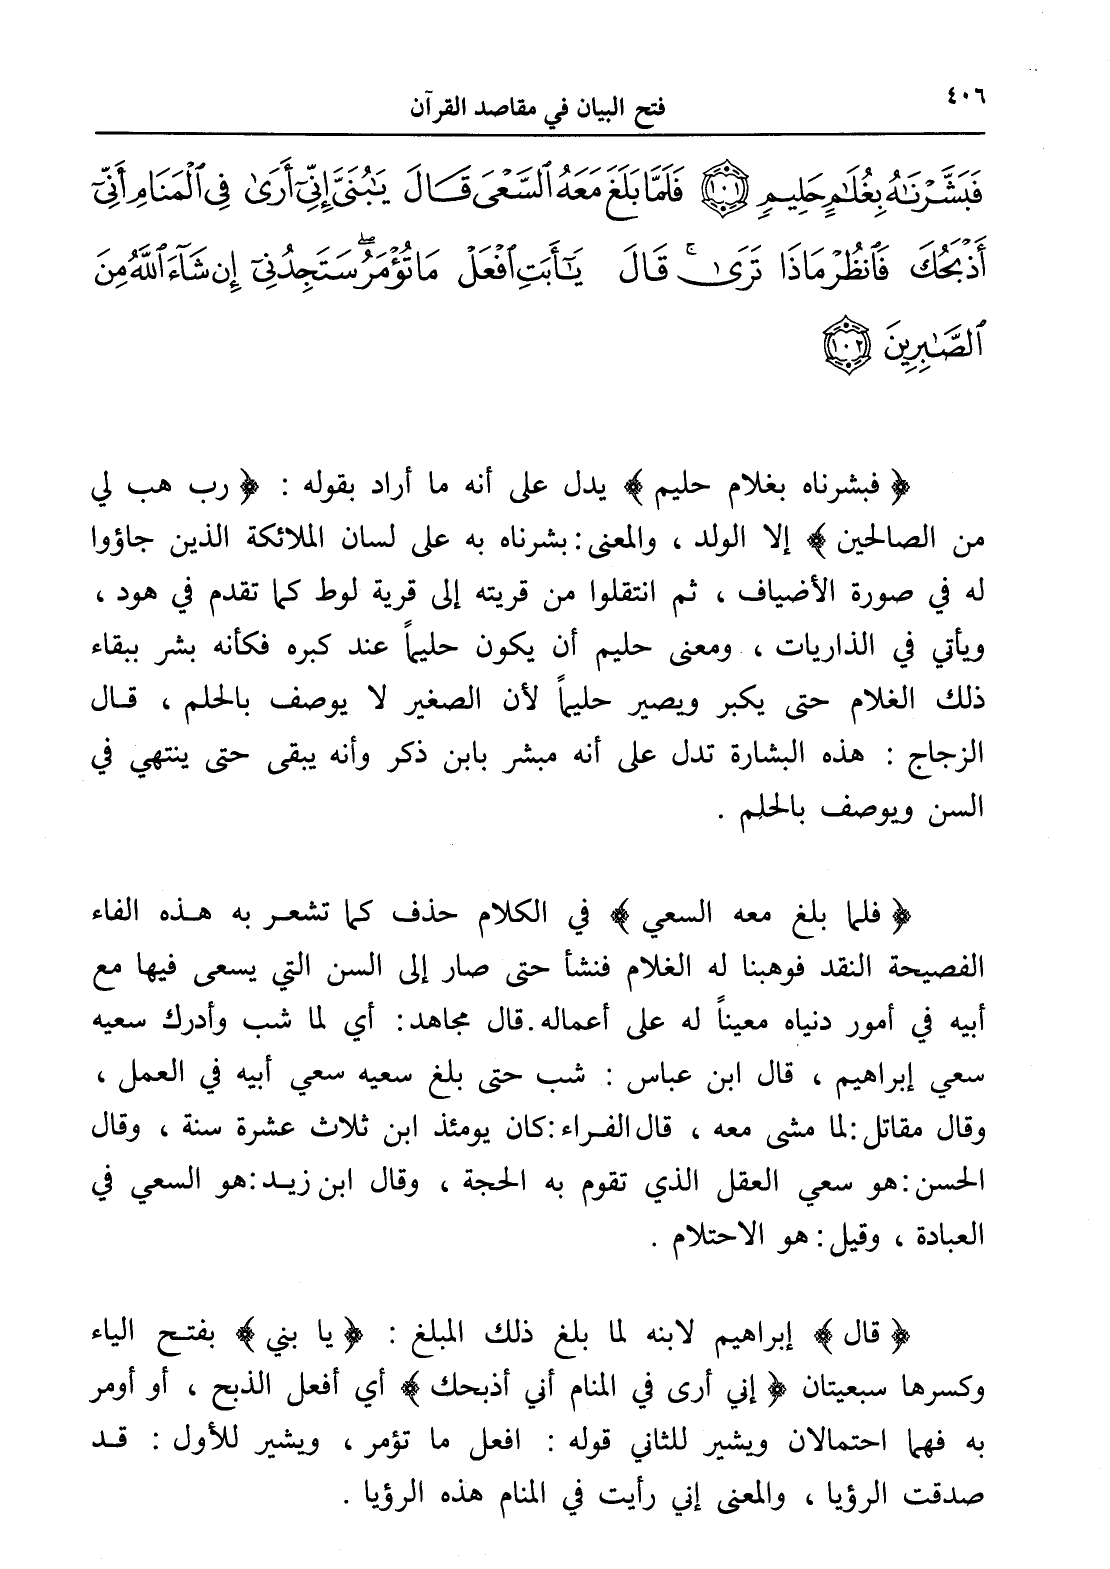 ٤٠٦
فتح البيان في مقاصد القرآن
فَبَشَّرْنَٰهُ بِغُلَٰمٍ حَلِيمٍ ١٠١ فَلَمَّا بَلَغَ مَعَهُ ٱلسَّعْىَ قَالَ يَٰبُنَىَّ إِنِّىٓ أَرَىٰ فِى ٱلْمَنَامِ أَنِّىٓ
أَذْبَحُكَ فَٱنظُرْ مَاذَا تَرَىٰۚ قَالَ يَٰٓأَبَتِ ٱفْعَلْ مَا تُؤْمَرُۖ سَتَجِدُنِىٓ إِن شَآءَ ٱللَّهُ مِنَ
ٱلصَّٰبِرِينَ ١٠٢
﴿ فبشرناه بغلام حليم ﴾ يدل على أنه ما أراد بقوله : ﴿ رب هب لي
من الصالحين ﴾ إلا الولد ، والمعنى : بشرناه به على لسان الملائكة الذين جاؤوا
له في صورة الأضياف ، ثم انتقلوا من قريته إلى قرية لوط كما تقدم في هود ،
ويأتي في الذاريات ، ومعنى حليم أن يكون حليماً عند كبره فكأنه بشر ببقاء
ذلك الغلام حتى يكبر ويصير حليماً لأن الصغير لا يوصف بالحلم ، قال
الزجاج : هذه البشارة تدل على أنه مبشر بابن ذكر وأنه يبقى حتى ينتهي في
السن ويوصف بالحلم .
﴿ فلما بلغ معه السعي ﴾ في الكلام حذف كما تشعر به هذه الفاء
الفصيحة النقد فوهبنا له الغلام فنشأ حتى صار إلى السن التي يسعى فيها مع
أبيه في أمور دنياه معيناً له على أعماله . قال مجاهد : أي لما شب وأدرك سعيه
سعي إبراهيم ، قال ابن عباس : شب حتى بلغ سعيه سعي أبيه في العمل ،
وقال مقاتل : لما مشى معه ، قال الفراء : كان يومئذ ابن ثلاث عشرة سنة ، وقال
الحسن : هو سعي العقل الذي تقوم به الحجة ، وقال ابن زيد : هو السعي في
العبادة ، وقيل : هو الاحتلام .
﴿ قال ﴾ إبراهيم لابنه لما بلغ ذلك المبلغ : ﴿ يا بني ﴾ بفتح الياء
وكسرها سبعيتان ﴿ إني أرى في المنام أني أذبحك ﴾ أي أفعل الذبح ، أو أومر
به فهما احتمالان ويشير للثاني قوله : افعل ما تؤمر ، ويشير للأول : قد
صدقت الرؤيا ، والمعنى إني رأيت في المنام هذه الرؤيا .